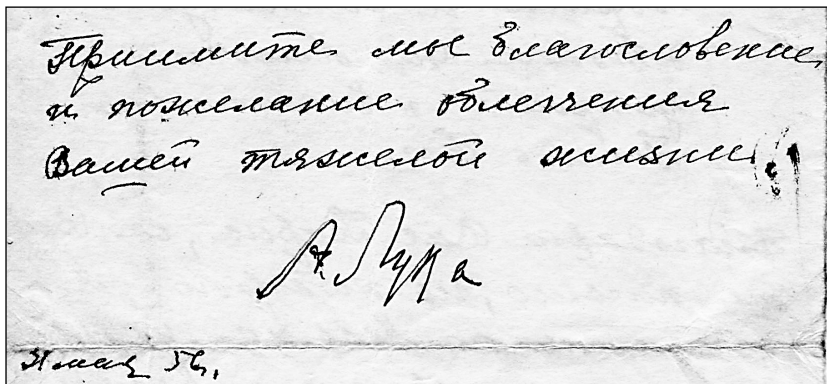 Приимите мое благословение
и пожелание облегчения
Вашей тяжелой жизни.
А. Лука
31 мая 56,